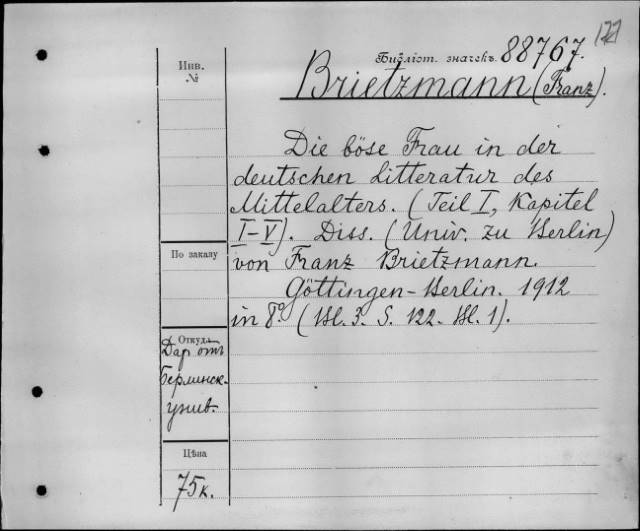 122
Библіот. значекъ 88767.
Brietzmann (Franz).
Инв.
№
Die böse Frau in der
deutschen Litteratur des
Mittelalters. (Teil I, Kapitel
I-V). Diss. (Univ. zu Berlin)
von Franz Brietzmann.
Göttingen-Berlin. 1912
in 8° (Bl. 3. S. 122. Bl. 1).
По заказу
Откуда
Дар отъ
Берлинск.
унив.
Цѣна
75 к.